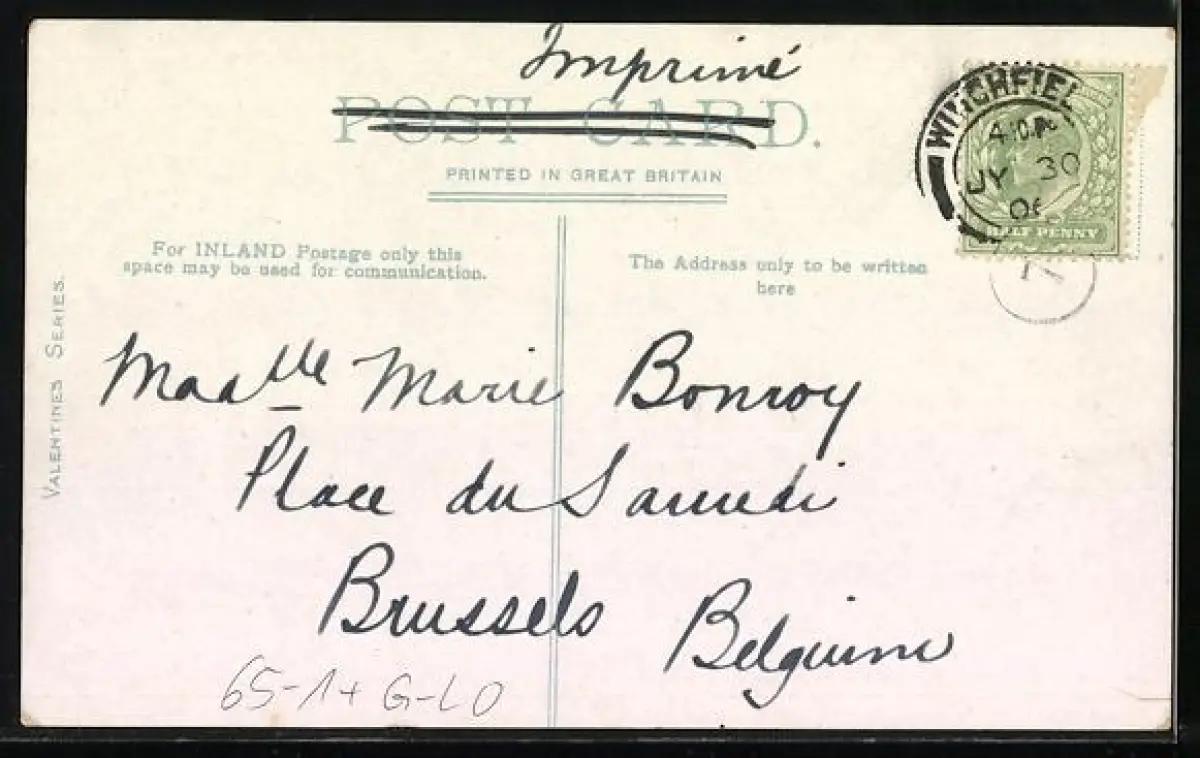 Imprimé
POST CARD.
PRINTED IN GREAT BRITAIN
WINCHFIEL
JY 30
06
HALF PENNY
For INLAND Postage only this
space may be used for communication.
The Address only to be written
here
VALENTINES SERIES.
Madlle Marie Bonroy
Place du Samedi
Brussels Belguim
65-1+ G-LO